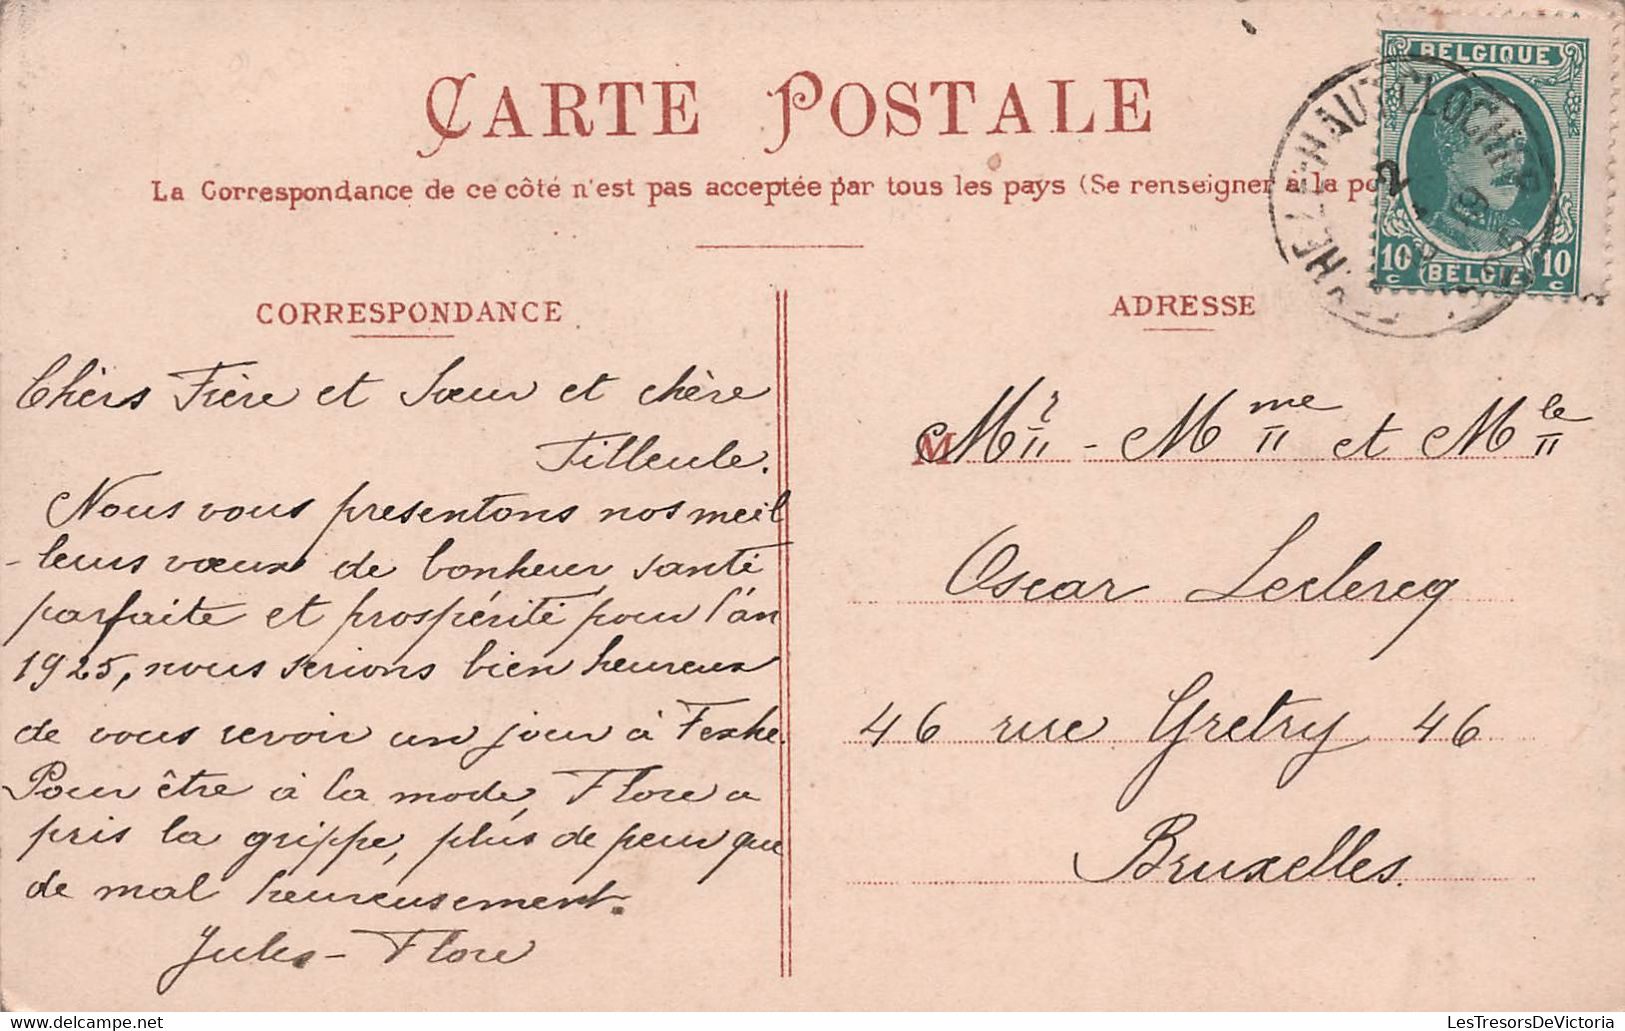 CARTE POSTALE
La Correspondance de ce côté n'est pas acceptée par tous les pays (Se renseigner à la po
BELGIQUE
10 c
BELGIË
10 c
CORRESPONDANCE
Chèrs Frère et Sœur et chère
Filleule.
Nous vous presentons nos meil
-leurs vœux de bonheur, santé
parfaite et prospérité pour l'an
1925, nous serions bien heureux
de vous revoir un jour à Fexhe.
Pour être à la mode, Flore a
pris la grippe, plus de peur que
de mal heureusement.
Jules - Flore
ADRESSE
M Mr - Mme et Mle
Oscar Leclercq
46 rue Grétry 46
Bruxelles.
LesTresorsDeVictoria